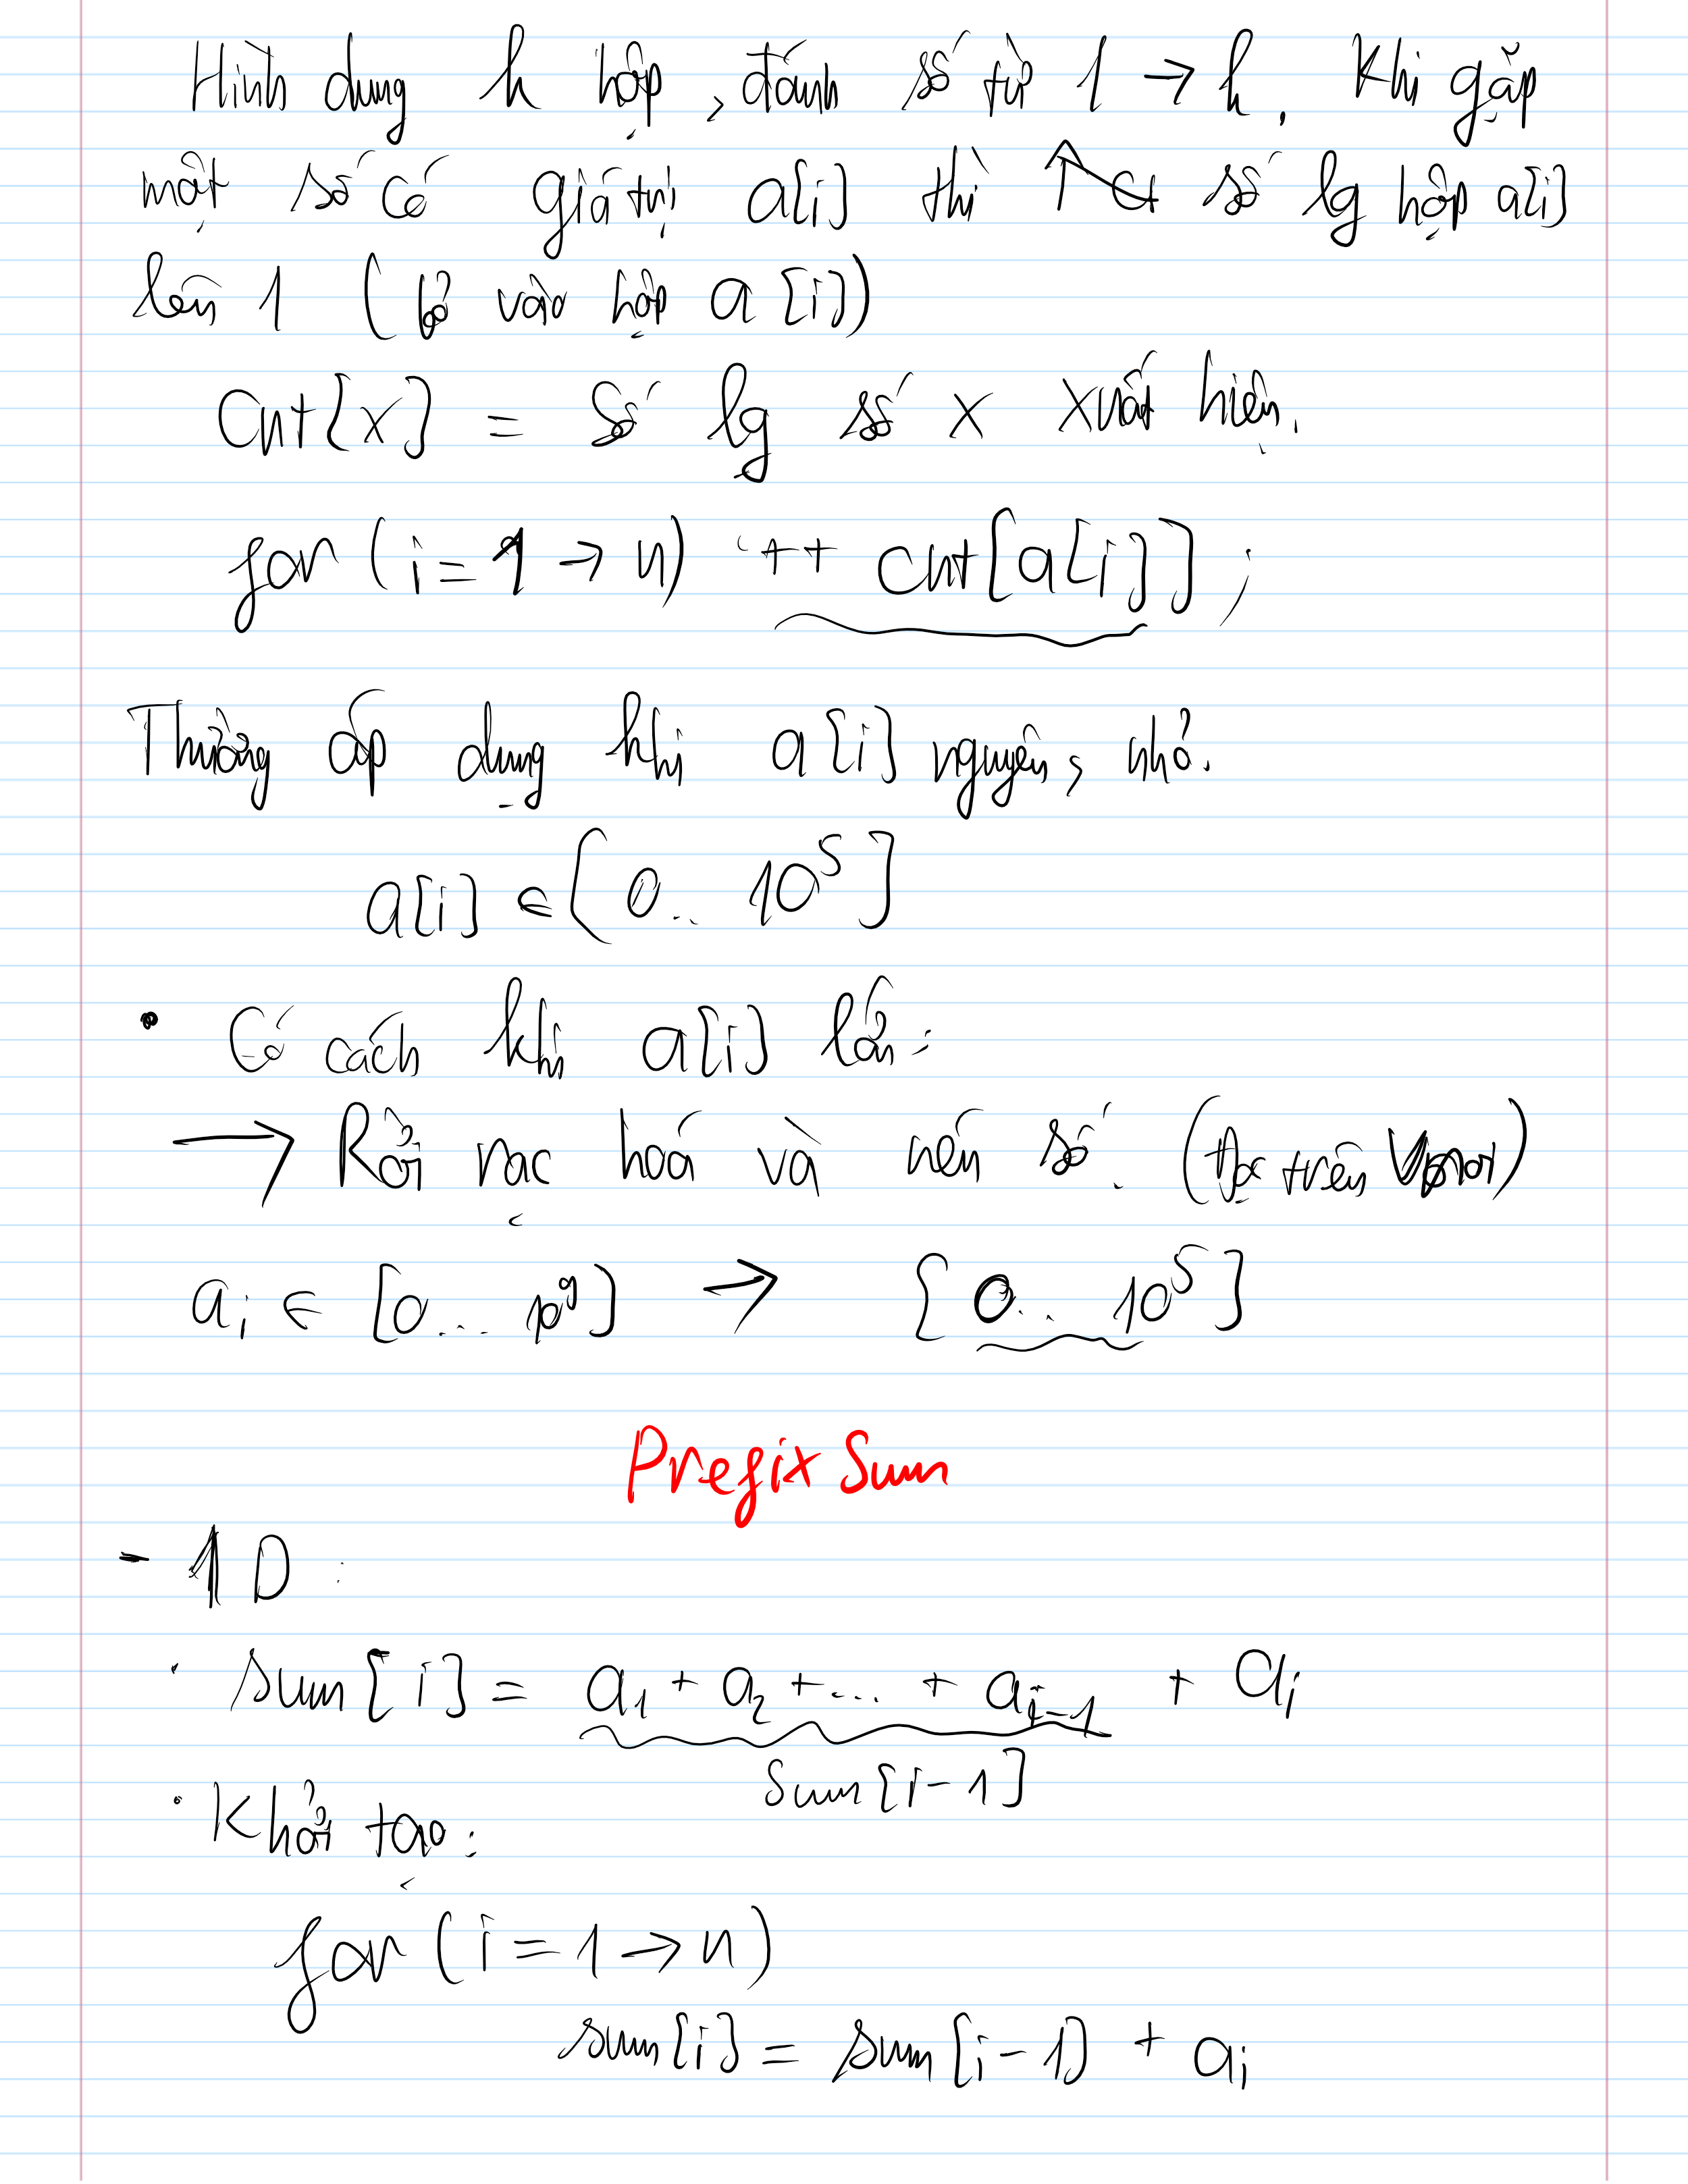 Hình dung k hộp, đánh số từ 1 → k. Khi gặp
một số có giá trị a[i] thì số lg hộp a[i]
lên 1 (bỏ vào hộp a[i])
Cnt[x] = Số lg số x xuất hiện.
for (i = 1 → n) ++ cnt[a[i]];
Thường áp dụng khi a[i] nguyên, nhỏ.
a[i] ∈ [0.. 10⁵]
• Có cách khi a[i] lớn:
→ Rời rạc hoá và nén số. (Đọc trên)
aᵢ ∈ [0... 10⁹] → [0.. 10⁵]
Prefix Sum
- 1D:
• sum[i] = a₁ + a₂ + ... + aᵢ₋₁ + aᵢ
sum[i-1]
• Khởi tạo:
for (i = 1 → n)
sum[i] = sum[i-1] + aᵢ